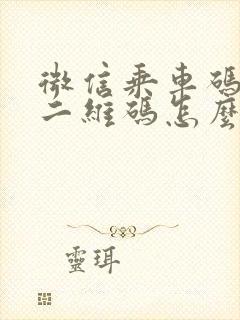 微信乘車碼
二維碼怎麼
靈珥